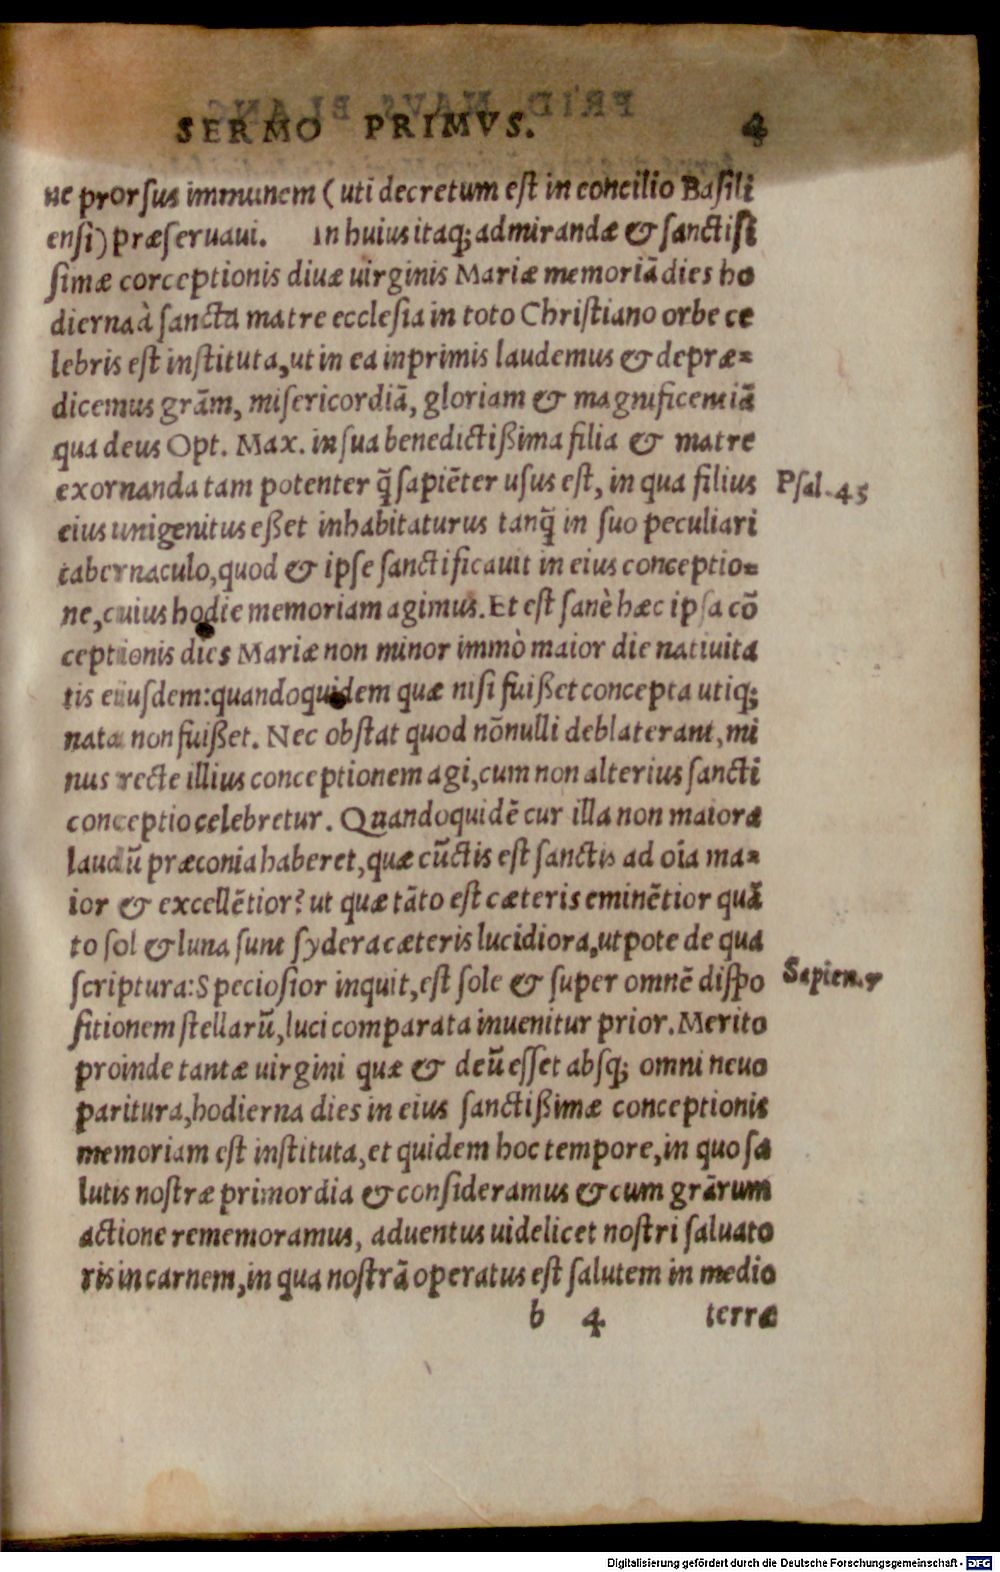 SERMO PRIMVS. 4
ne prorsus immunem (uti decretum est in concilio Basili
ensi) præseruaui. In huius itaq; admirandæ & sanctiss
simæ corceptionis diuæ uirginis Mariæ memoriā dies ho
dierna à sancta matre ecclesia in toto Christiano orbe ce
lebris est instituta, ut in ea inprimis laudemus & depræ=
dicemus grām, misericordiā, gloriam & magnificentiā
qua deus Opt. Max. in sua benedictißima filia & matre
exornanda tam potenter q̃ sapiēter usus est, in qua filius
Psal. 45
eius unigenitus eßet inhabitaturus tanq̃ in suo peculiari
tabernaculo, quod & ipse sanctificauit in eius conceptio=
ne, cuius hodie memoriam agimus. Et est sanè hæc ipsa cō
ceptionis dies Mariæ non minor immò maior die natiuita
tis eiusdem: quandoquidem quæ nisi fuißet concepta utiq;
nata non fuißet. Nec obstat quod nōnulli deblaterant, mi
nus recte illius conceptionem agi, cum non alterius sancti
conceptio celebretur. Quandoquidē cur illa non maiora
laudū præconia haberet, quæ cūctis est sanctis ad oīa ma=
ior & excellētior? ut quæ tāto est cæteris eminētior quā
to sol & luna sunt sydera cæteris lucidiora, utpote de qua
scriptura: Speciosior inquit, est sole & super omnē dispo
Sapien. 7
sitionem stellarū, luci comparata inuenitur prior. Merito
proinde tantæ uirgini quæ & deū esset absq; omni neuo
paritura, hodierna dies in eius sanctißimæ conceptionis
memoriam est instituta, et quidem hoc tempore, in quo sa
lutis nostræ primordia & consideramus & cum grārum
actione rememoramus, aduentus uidelicet nostri saluato
ris in carnem, in qua nostrā operatus est salutem in medio
b 4 terræ
Digitalisierung gefördert durch die Deutsche Forschungsgemeinschaft - DFG